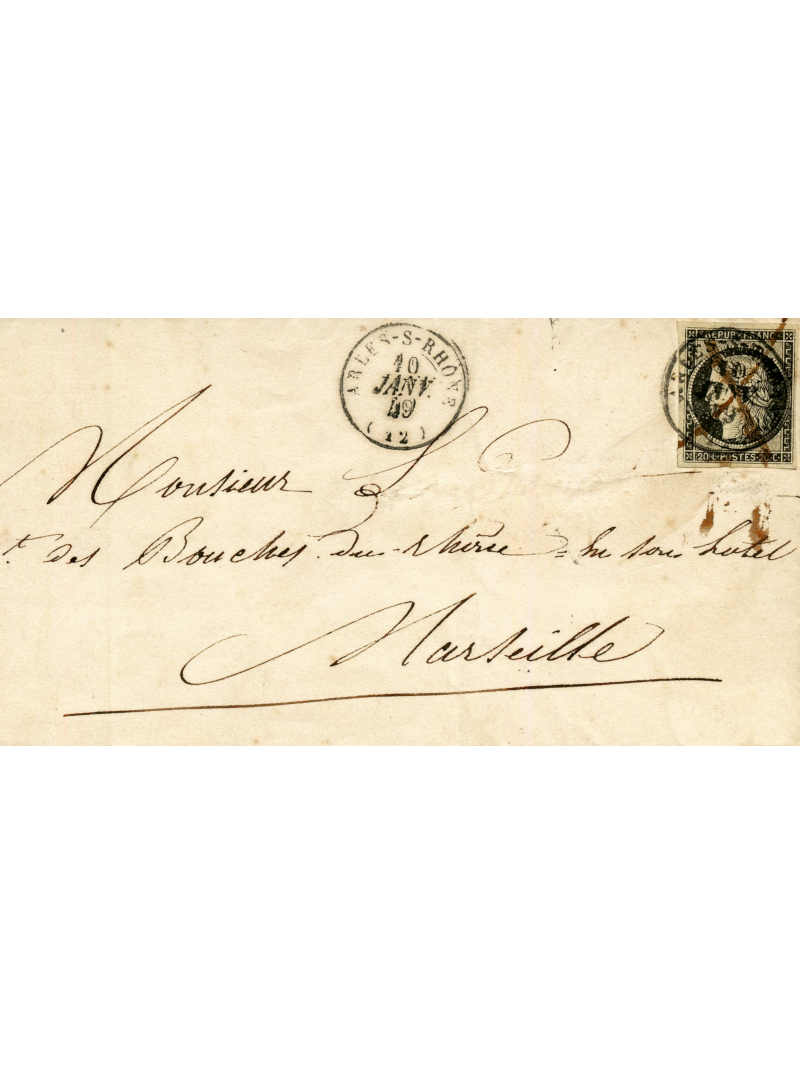 ARLES-S-RHÔNE
10
JANV.
49
(12)
REPUB·FRANC
ARLES
10
20·C·POSTES·20·C
Monsieur
t. des Bouches-du-rhône = En son hotel
Marseille